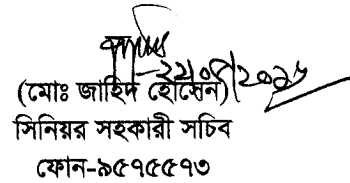 (মোঃ জাহিদ হোসেন)
সিনিয়র সহকারী সচিব
ফোন-৯৫৭৫৫৭৩